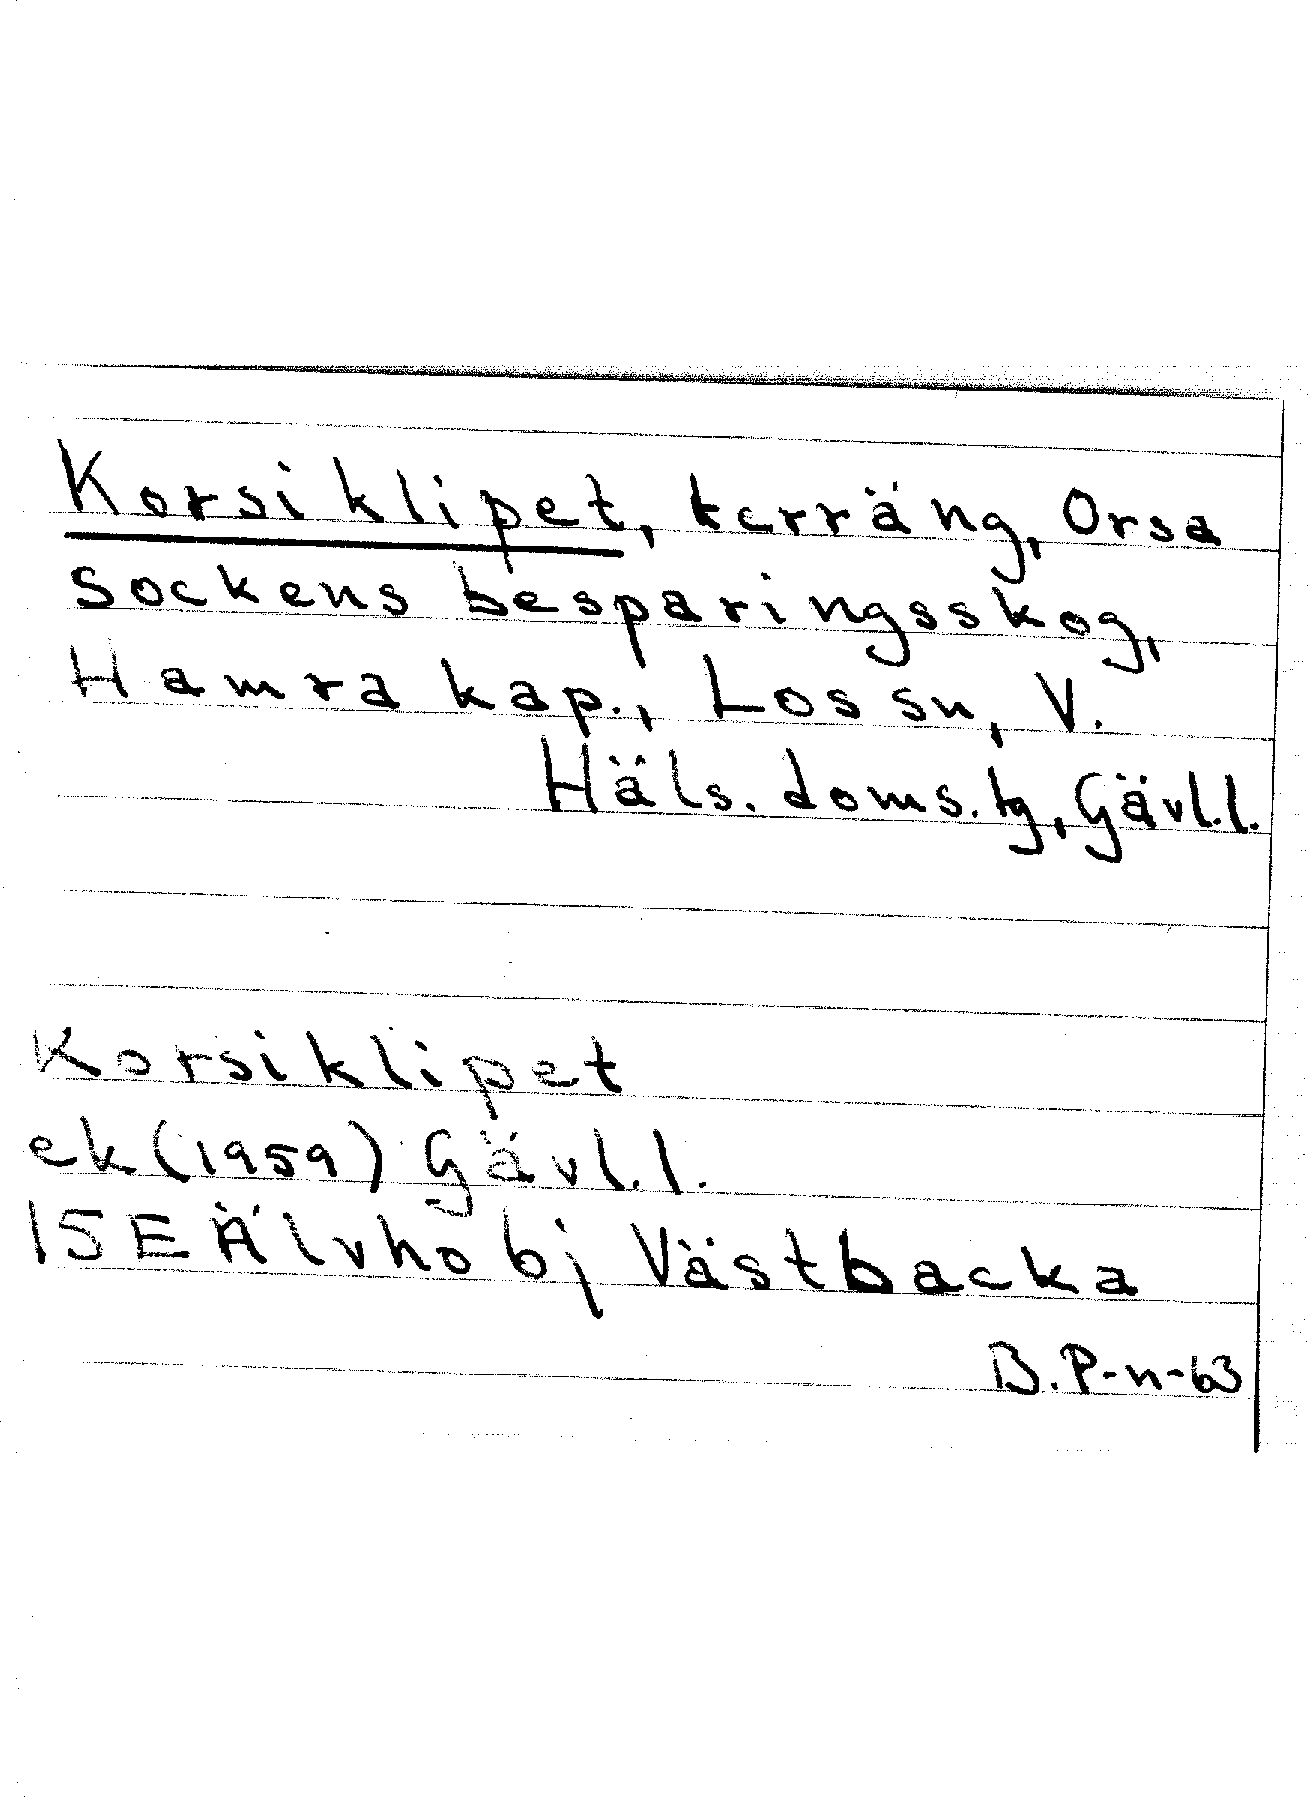 Korsiklipet, terräng, Orsa
sockens besparingsskog,
Hamra kap., Los sn, V.
Häls. doms. lg, Gävl.l.
Korsiklipet
ek (1959) Gävl.l.
15E Älvho bj Västbacka
B.P-n-63